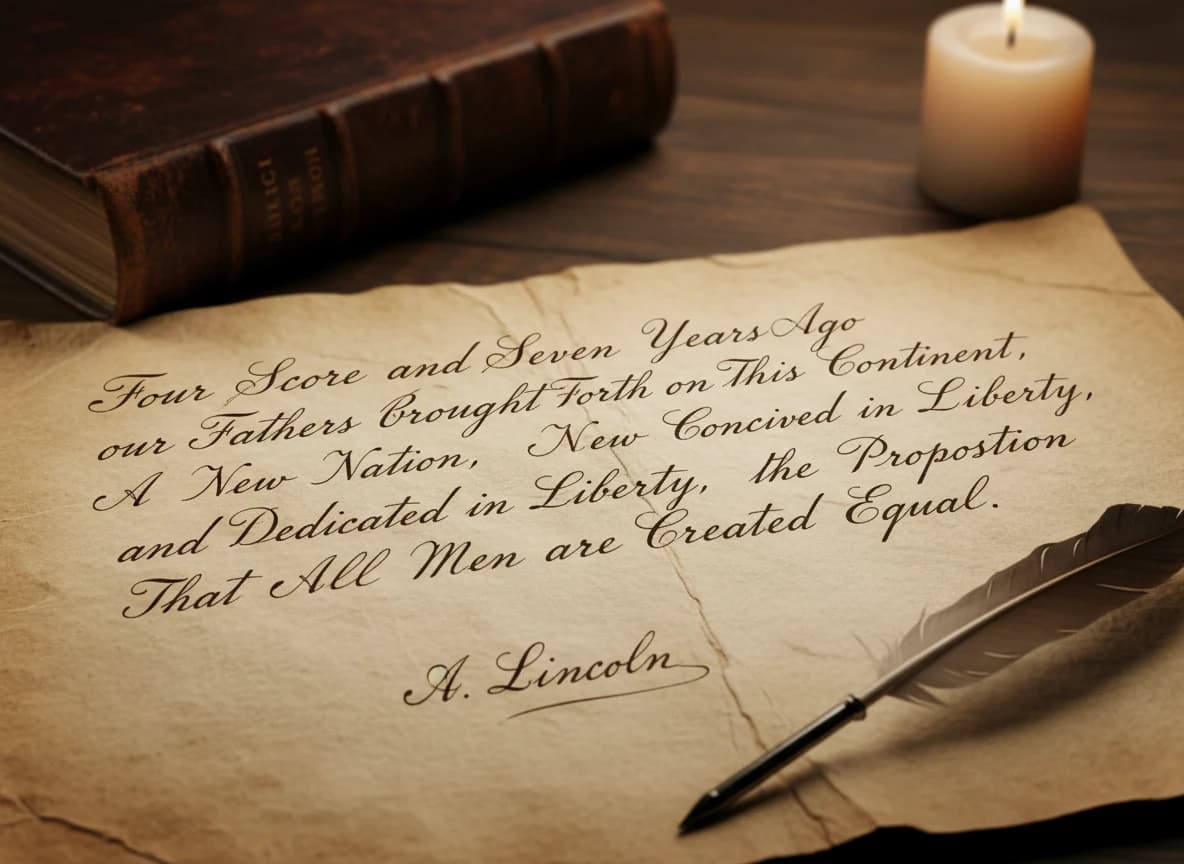 Four Score and Seven Years Ago
our Fathers brought Forth on This Continent,
A New Nation, New Concived in Liberty,
and Dedicated in Liberty, the Propostion
That All Men are Created Equal.
A. Lincoln